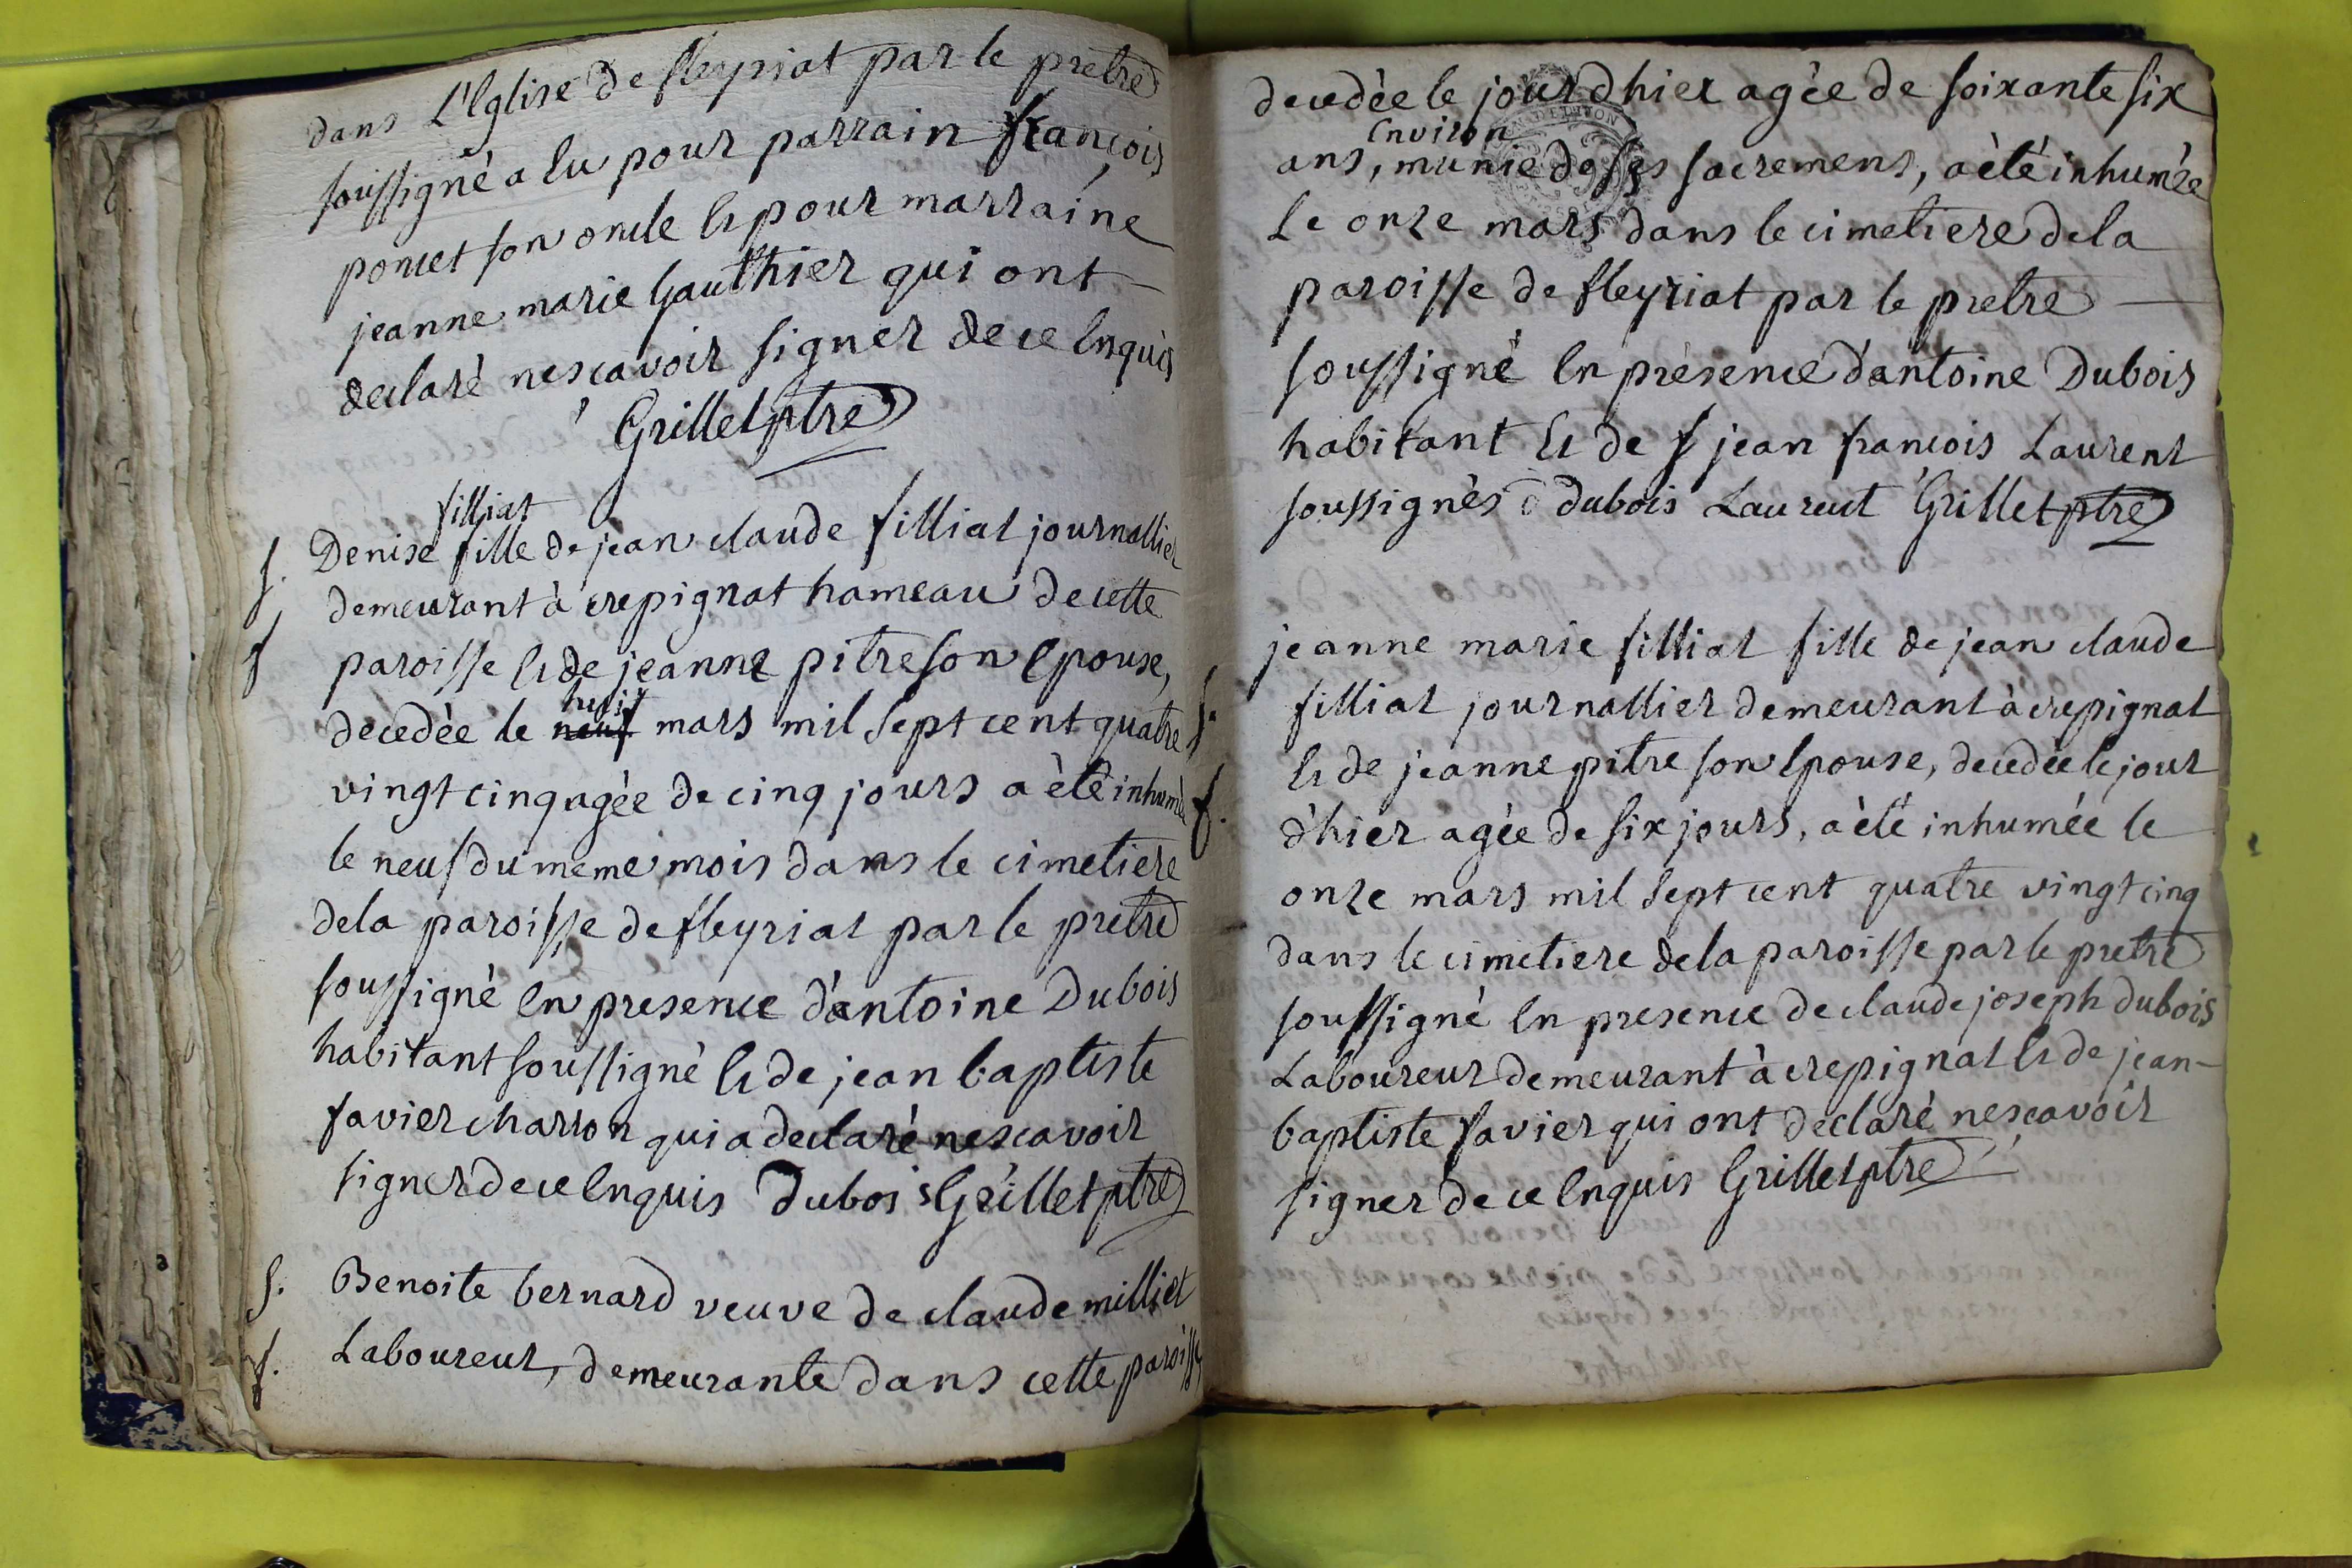 dans L'Eglise de fleyriat par le pretre
soussigné a Eu pour parrain françois
poncet son oncle Et pour marraine
jeanne marie Gauthier qui ont
declaré nescavoir signer de ce Enquis
Grillet ptre
filliat
S. Denise fille de jean claude filliat journallier
demeurant à crepignat hameau de cette
f paroisse Et de jeanne pitre son Epouse,
huit
decedèe le neuf mars mil sept cent quatre
vingt cinq agèe de cinq jours a èté inhumèe
le neuf du meme mois dans le cimetiere
dela paroisse de fleyriat par le pretre
soussigné En presence d'antoine Dubois
habitant soussigné Et de jean baptiste
favier charron qui a declaré nescavoir
signer de ce Enquis Dubois Grillet ptre
S. Benoite bernard veuve de claude milliet
f. Laboureur, demeurante dans cette paroisse
decedèe le jour d'hier agèe de soixante six
Environ
ans, munie de ses sacremens, a èté inhumèe
Le onze mars dans le cimetiere dela
paroisse de fleyriat par le pretre
soussigné En prèsence d'antoine Dubois
habitant Et de f jean francois Laurent
soussignès Dubois Laurent Grillet ptre
jeanne marie filliat fille de jean claude
filliat journallier demeurant à crepignat
S. Et de jeanne pitre son Epouse, decedèe le jour
f. d'hier agèe de six jours, a èté inhumée le
onze mars mil sept cent quatre vingt cinq
dans le cimetiere dela paroisse par le pretre
soussigné En presence de claude joseph Dubois
Laboureur demeurant à crepignat Et de jean-
baptiste favier qui ont declaré nescavoir
signer de ce Enquis Grillet ptre